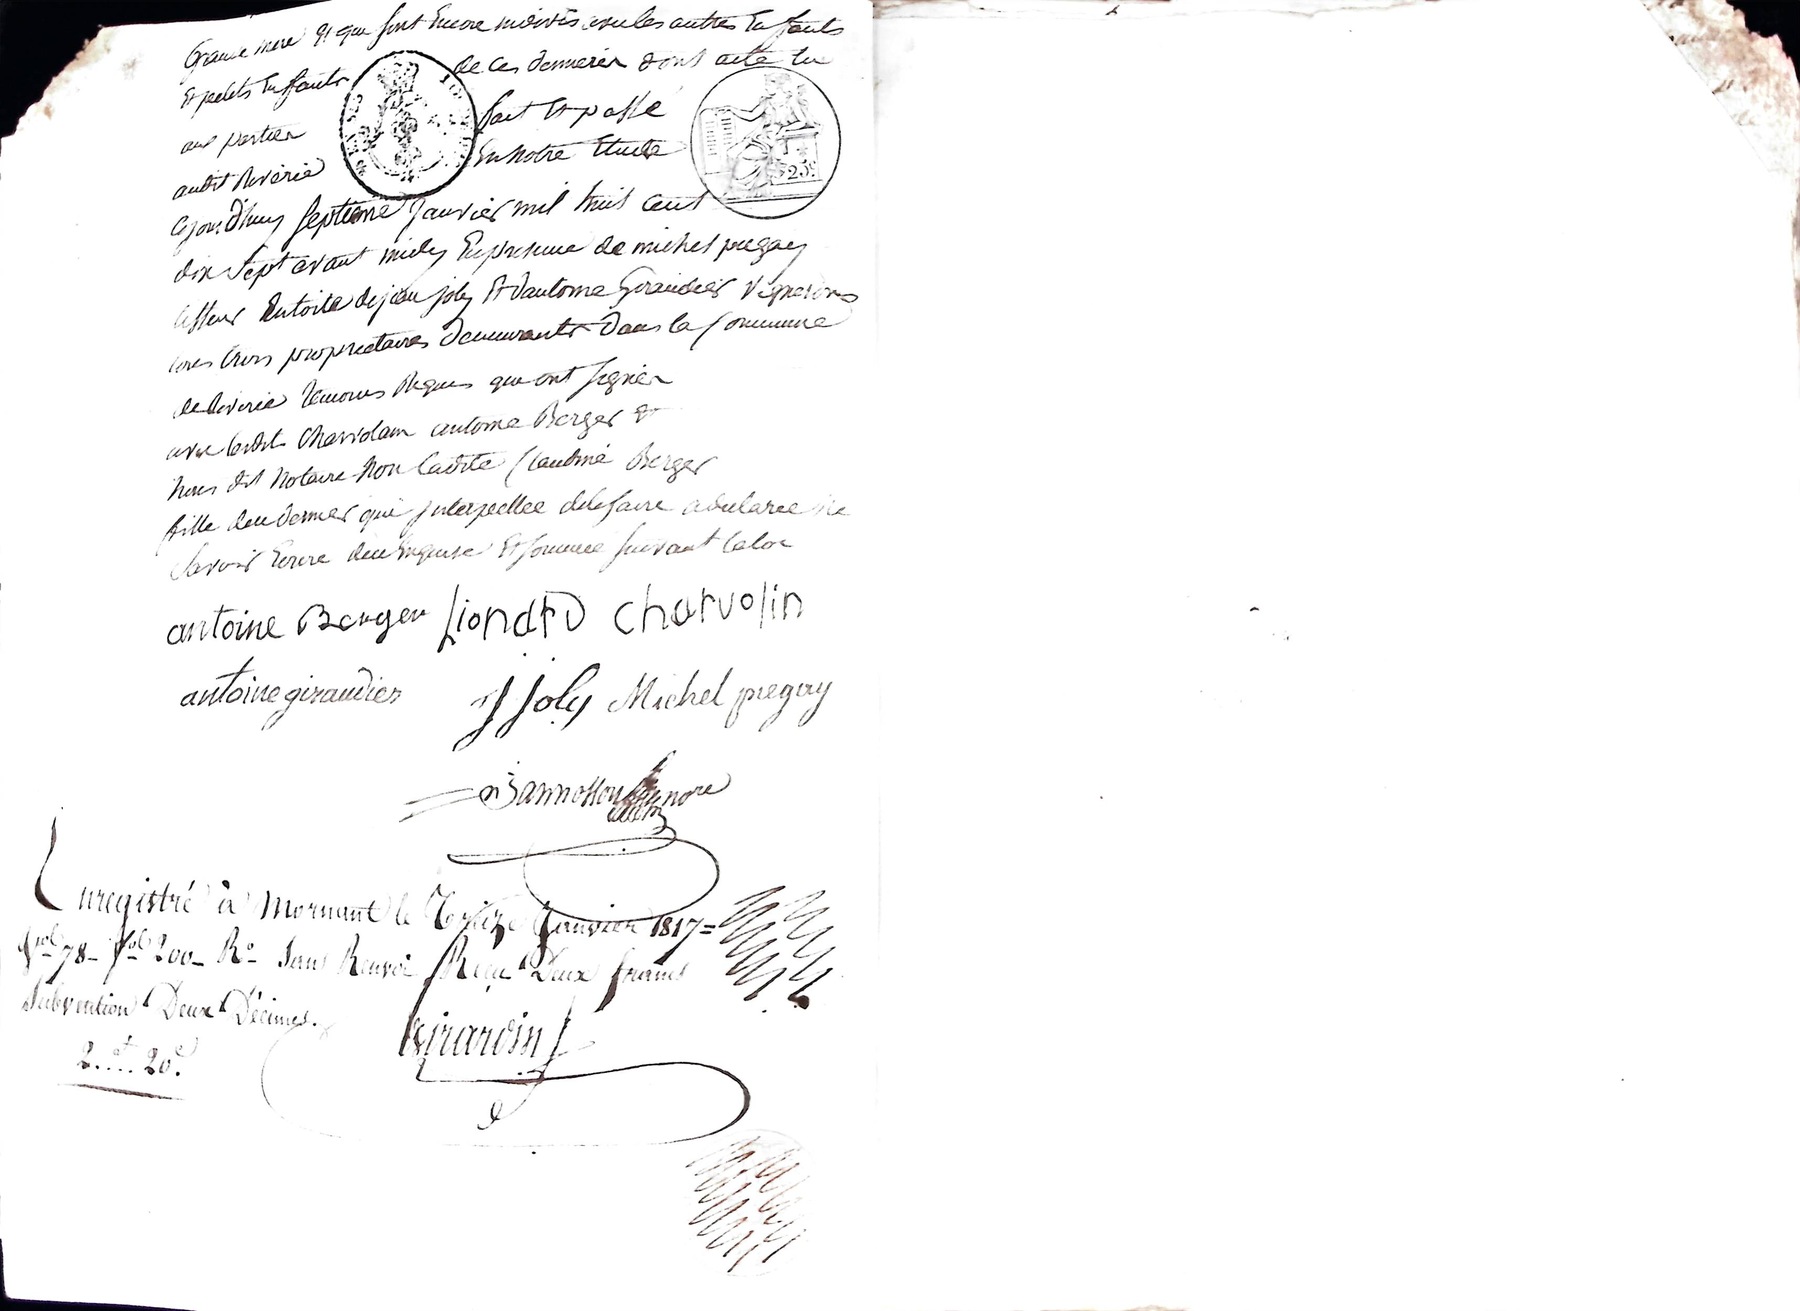 Grand mere et que sont Encore indivis avec les autres Enfants
Et petits Enfants de ces derniers dont acte lu
aux parties fait Et passé
audit Riverie En notre Etude
Cejourd'huy septieme Janvier mil huit cent
dix sept avant midy En presence de michel pregay
tisseur de toile de jean joly Et d'antoine Giraudier Vignerons
tous trois proprietaires demeurants dans la Commune
de Riverie temoins Requis que ont signer
avec ledit Charvolain antoine Berger Et
nous dit Notaire Non ladite Claudine Berger
fille de ce dernier qui Interpellee de le faire a declaree ne
Savoir Ecrire de ce Enquise Et sommee suivant la loi
antoine Berger Liondrd charvolin
antoine giraudier J Joly Michel pregay
nore
Enregistré à Mornant le Treize Janvier 1817 =
fol 78 - 200 - Ro Sans Renvoi Reçu Deux francs
Subvention Deux Décimes.
Girardin
2.... 20c.
25c